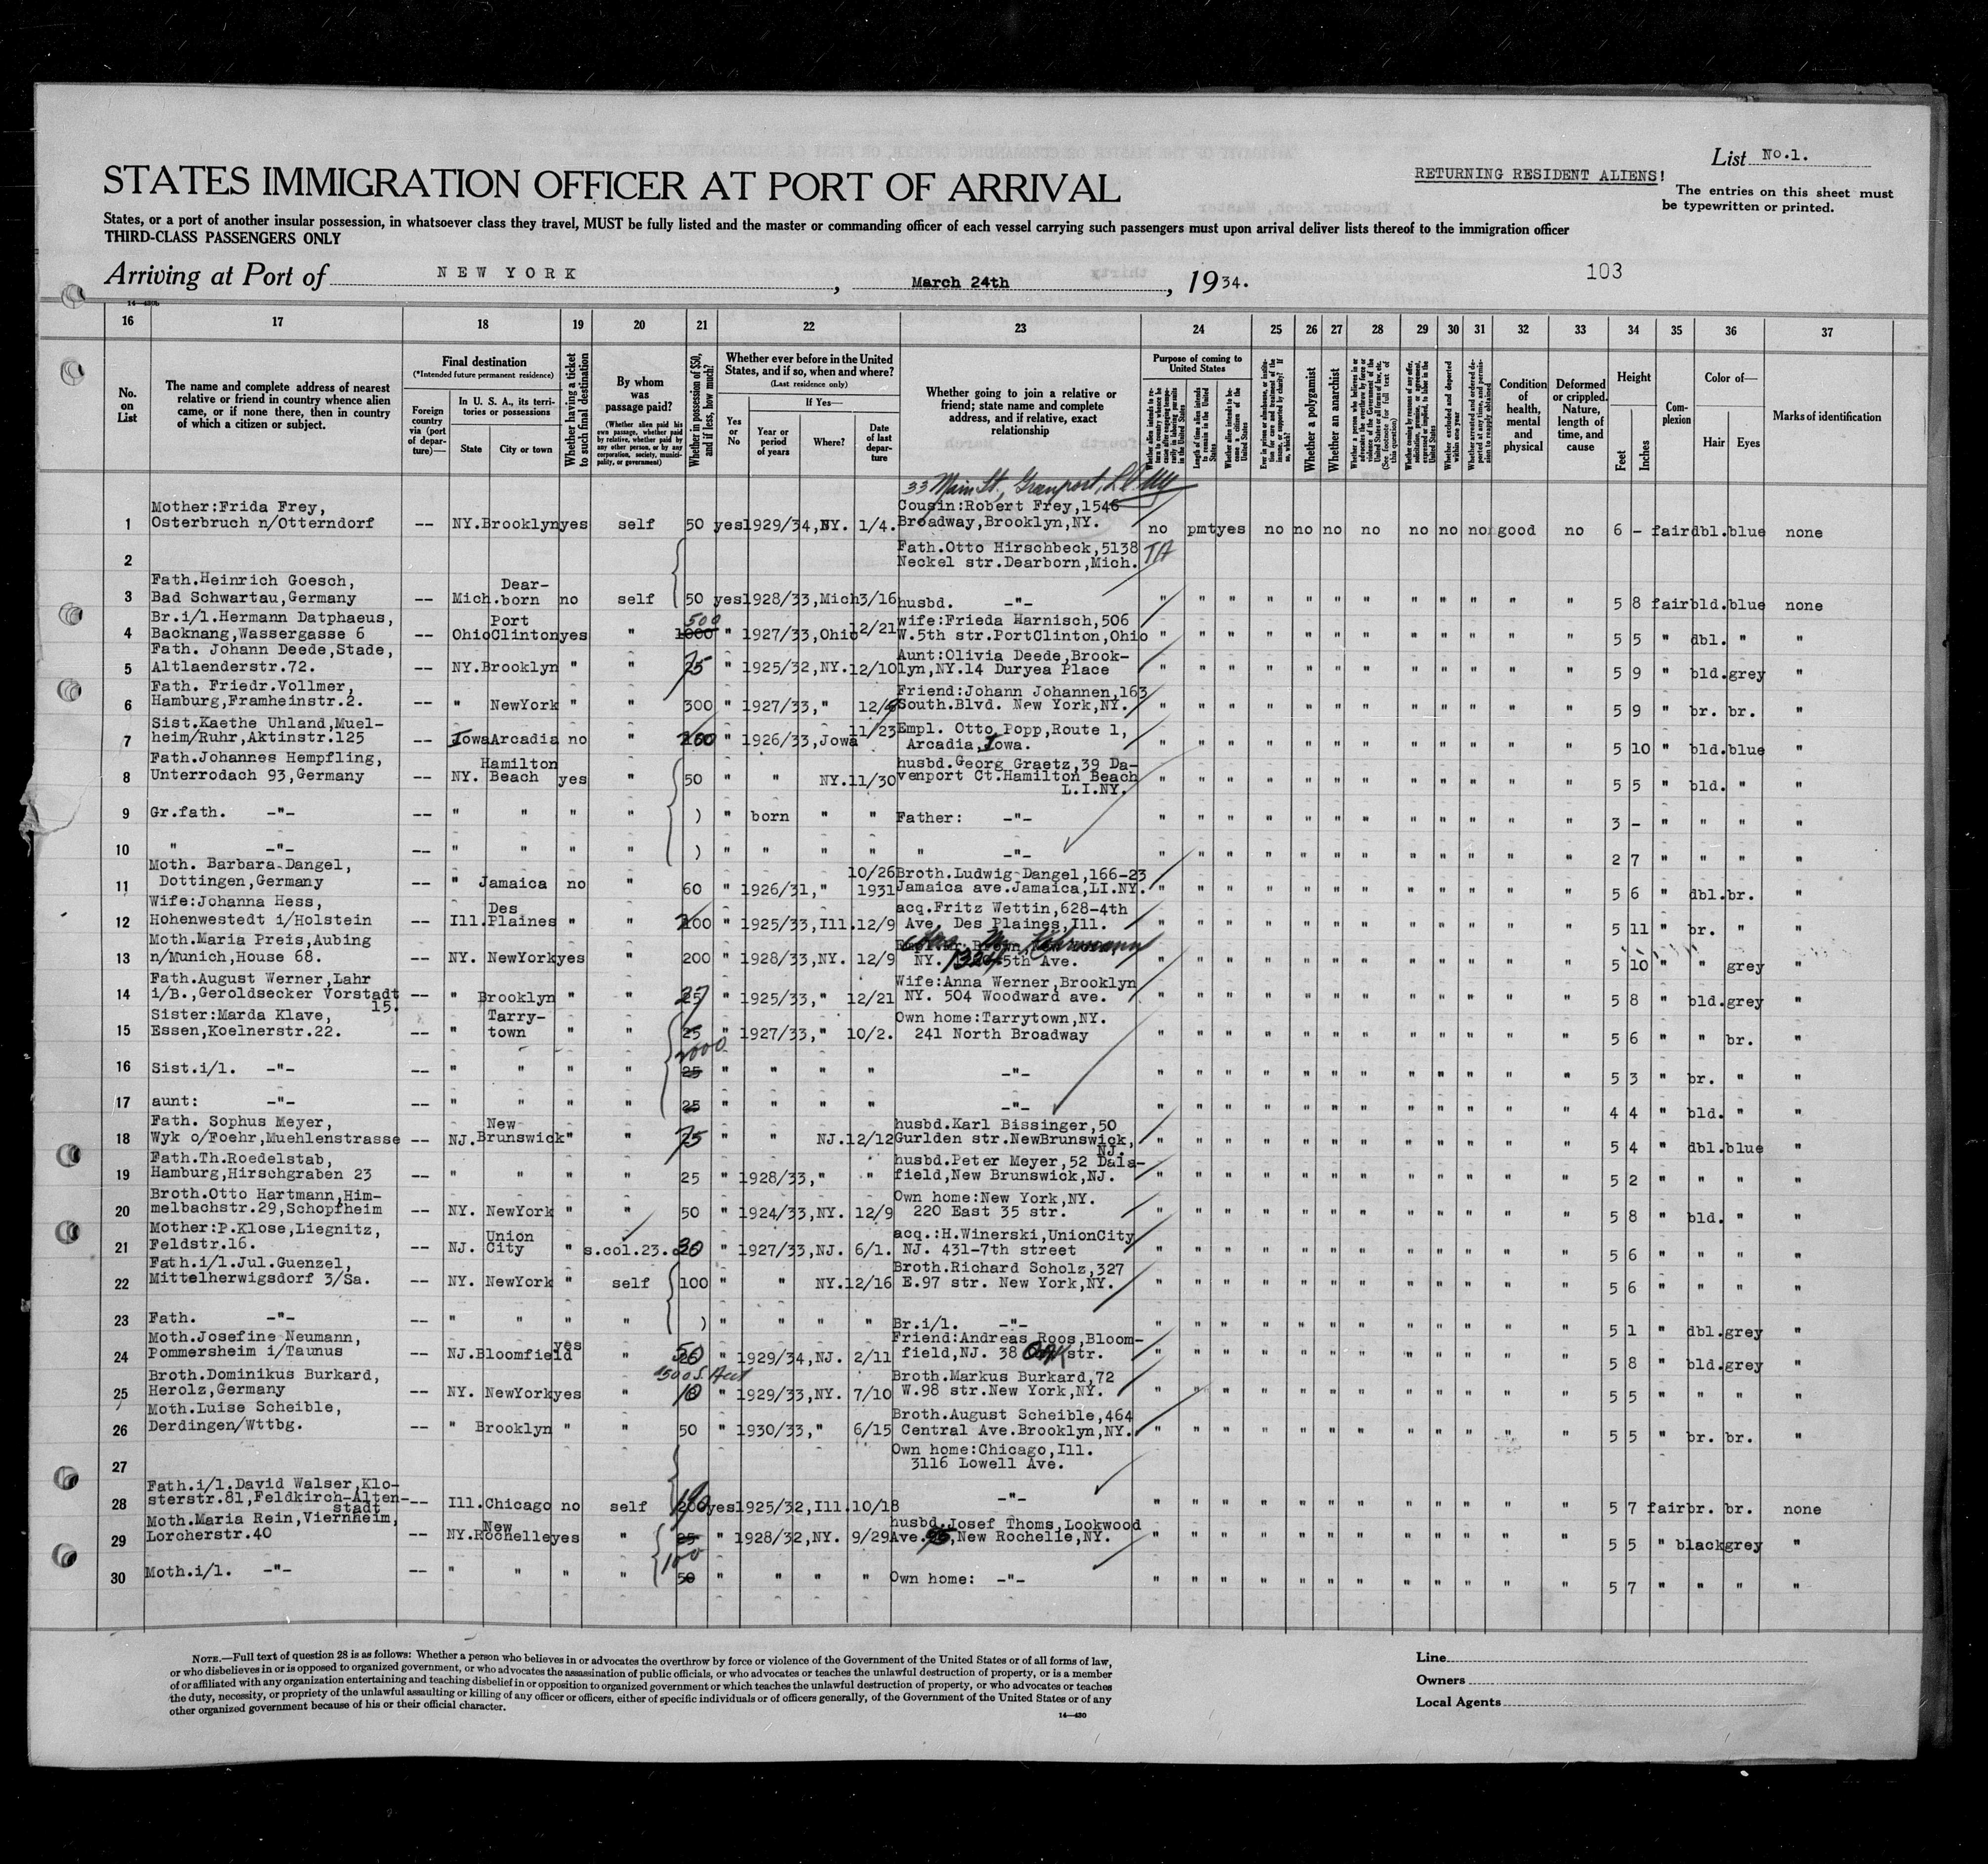 List No.1.
STATES IMMIGRATION OFFICER AT PORT OF ARRIVAL
RETURNING RESIDENT ALIENS!
The entries on this sheet must
be typewritten or printed.
States, or a port of another insular possession, in whatsoever class they travel, MUST be fully listed and the master or commanding officer of each vessel carrying such passengers must upon arrival deliver lists thereof to the immigration officer
THIRD-CLASS PASSENGERS ONLY
Arriving at Port of NEW YORK, March 24th, 1934.
103
16 17 18 19 20 21 22 23 24 25 26 27 28 29 30 31 32 33 34 35 36 37
No. on List
The name and complete address of nearest relative or friend in country whence alien came, or if none there, then in country of which a citizen or subject.
Final destination
(*Intended future permanent residence)
Foreign country via (port of departure)—
In U. S. A., its territories or possessions
State
City or town
Whether having a ticket to such final destination
By whom was passage paid?
(Whether alien paid his own passage, whether paid by relative, whether paid by any other person, or by any corporation, society, municipality, or government)
Whether in possession of $50, and if less, how much?
Whether ever before in the United States, and if so, when and where?
(Last residence only)
Yes or No
If Yes—
Year or period of years
Where?
Date of last departure
Whether going to join a relative or friend; state name and complete address, and if relative, exact relationship
Purpose of coming to United States
Length of time alien intends to remain in the United States
Whether alien intends to become a citizen of the United States
Whether a polygamist
Whether an anarchist
Whether excluded and deported within one year
Condition of health, mental and physical
Deformed or crippled. Nature, length of time, and cause
Height
Feet
Inches
Complexion
Color of—
Hair
Eyes
Marks of identification
33 Main St., Greenport, L.I. NY
1 Mother:Frida Frey, Osterbruch n/Otterndorf -- NY. Brooklyn yes self 50 yes 1929/34,NY. 1/4. Cousin:Robert Frey,1546 Broadway,Brooklyn,NY. no pmt yes no no no no no no no good no 6 - fair dbl. blue none
2 Fath.Otto Hirschbeck,5138 Neckel str.Dearborn,Mich.
3 Fath.Heinrich Goesch, Bad Schwartau,Germany -- Mich. Dear-born no self 50 yes 1928/33,Mich 3/16 husbd. -"- " " " " " " " " " " " " 5 8 fair bld. blue none
4 Br.i/l.Hermann Datphaeus, Backnang,Wassergasse 6 -- Ohio Port Clinton yes " 1000 500 " 1927/33,Ohio 12/21 wife:Frieda Harnisch,506 W.5th str.PortClinton,Ohio " " " " " " " " " " " " 5 5 " dbl. " "
5 Fath. Johann Deede,Stade, Altlaenderstr.72. -- NY. Brooklyn " " 75 " 1925/32,NY. 12/10 Aunt:Olivia Deede,Brook-lyn,NY.14 Duryea Place " " " " " " " " " " " " 5 9 " bld. grey "
6 Fath. Friedr.Vollmer, Hamburg,Framheinstr.2. -- " NewYork " " 300 " 1927/33," Friend:Johann Johannen,163 South.Blvd. New York,NY. " " " " " " " " " " " " 5 9 " br. br. "
7 Sist.Kaethe Uhland,Muel-heim/Ruhr,Aktinstr.125 -- Iowa Arcadia no " " 1926/33,Iowa 11/23 Empl. Otto Popp,Route 1, Arcadia,Iowa. " " " " " " " " " " " " 5 10 " bld. blue "
8 Fath.Johannes Hempfling, Unterrodach 93,Germany -- NY. Hamilton Beach yes " 50 " " NY. 11/30 husbd.Georg Graetz,39 Da-venport Ct.Hamilton Beach L.I.NY. " " " " " " " " " " " " 5 5 " bld. " "
9 Gr.fath. -"- -- " " " " ) " born " " Father: -"- " " " " " " " " " " " " 3 - " " " "
10 " -"- -- " " " " ) " " " " " -"- " " " " " " " " " " " " 2 7 " " " "
11 Moth. Barbara Dangel, Dottingen,Germany -- " Jamaica no " 60 " 1926/31," 10/26 1931 Broth.Ludwig Dangel,166-23 Jamaica ave.Jamaica,LI.NY. " " " " " " " " " " " " 5 6 " dbl. br. "
12 Wife:Johanna Hess, Hohenwestedt i/Holstein -- Ill. Des Plaines " " " 1925/33,Ill. 12/9 acq.Fritz Wettin,628-4th Ave. Des Plaines,Ill. " " " " " " " " " " " " 5 11 " br. " "
13 Moth.Maria Preis,Aubing n/Munich,House 68. -- NY. NewYork yes " 200 " 1928/33,NY. 12/9 NY. 5th Ave. " " " " " " " " " " " " 5 10 " " grey "
14 Fath.August Werner,Lahr i/B.,Geroldsecker Vorstadt 15. -- " Brooklyn " " 25 " 1925/33," 12/21 Wife:Anna Werner,Brooklyn NY. 504 Woodward ave. " " " " " " " " " " " " 5 8 " bld. grey "
15 Sister:Marda Klave, Essen,Koelnerstr.22. -- " Tarry-town " " 25 " 1927/33," 10/2. Own home:Tarrytown,NY. 241 North Broadway " " " " " " " " " " " " 5 6 " " br. "
2000
16 Sist.i/l. -"- -- " " " " 25 " " " " -"- " " " " " " " " " " " " 5 3 " br. " "
17 aunt: -"- -- " " " " 25 " " " " -"- " " " " " " " " " " " " 4 4 " bld. " "
18 Fath. Sophus Meyer, Wyk o/Foehr,Muehlenstrasse -- NJ. New Brunswick " " 75 " " NJ. 12/12 husbd.Karl Bissinger,50 Gurlden str.NewBrunswick, NJ. " " " " " " " " " " " " 5 4 " dbl. blue "
19 Fath.Th.Roedelstab, Hamburg,Hirschgraben 23 -- " " " " 25 " 1928/33," " husbd.Peter Meyer,52 Dals-field,New Brunswick,NJ. " " " " " " " " " " " " 5 2 " " " "
20 Broth.Otto Hartmann,Him-melbachstr.29,Schopfheim -- NY. NewYork " " 50 " 1924/33,NY. 12/9 Own home:New York,NY. 220 East 35 str. " " " " " " " " " " " " 5 8 " bld. " "
21 Mother:P.Klose,Liegnitz, Feldstr.16. -- NJ. Union City " s.col.23. " 1927/33,NJ. 6/1. acq.:H.Winerski,UnionCity NJ. 431-7th street " " " " " " " " " " " " 5 6 " " " "
22 Fath.i/l.Jul.Guenzel, Mittelherwigsdorf 3/Sa. -- NY. NewYork " self 100 " " NY. 12/16 Broth.Richard Scholz,327 E.97 str. New York,NY. " " " " " " " " " " " " 5 6 " " " "
23 Fath. -"- -- " " " " ) " " " " Br.i/l. -"- " " " " " " " " " " " " 5 1 " dbl. grey "
24 Moth.Josefine Neumann, Pommersheim i/Taunus -- NJ. Bloomfield yes " 50 " 1929/34,NJ. 2/11 Friend:Andreas Roos,Bloom-field,NJ. 38 Oak str. " " " " " " " " " " " " 5 8 " bld. grey "
25 Broth.Dominikus Burkard, Herolz,Germany -- NY. NewYork yes " 10 " 1929/33,NY. 7/10 Broth.Markus Burkard,72 W.98 str.New York,NY. " " " " " " " " " " " " 5 5 " " " "
26 Moth.Luise Scheible, Derdingen/Wttbg. -- " Brooklyn " " 50 " 1930/33," 6/15 Broth.August Scheible,464 Central Ave.Brooklyn,NY. " " " " " " " " " " " " 5 5 " br. br. "
27 Own home:Chicago,Ill. 3116 Lowell Ave.
28 Fath.i/l.David Walser,Klo-sterstr.81,Feldkirch-Alten-stadt -- Ill. Chicago no self yes 1925/32,Ill. 10/18 -"- " " " " " " " " " " " " 5 7 fair br. br. none
29 Moth.Maria Rein,Viernheim, Lorcherstr.40 -- NY. New Rochelle yes " 25 " 1928/32,NY. 9/29 husbd.Josef Thoms,Lookwood Ave. 95,New Rochelle,NY. " " " " " " " " " " " " 5 5 " black grey "
100
30 Moth.i/l. -"- -- " " " " 50 " " " " Own home: -"- " " " " " " " " " " " " 5 7 " " " "
NOTE.—Full text of question 28 is as follows: Whether a person who believes in or advocates the overthrow by force or violence of the Government of the United States or of all forms of law,
or who disbelieves in or is opposed to organized government, or who advocates the assassination of public officials, or who advocates or teaches the unlawful destruction of property, or is a member
of or affiliated with any organization entertaining and teaching disbelief in or opposition to organized government or which teaches the unlawful destruction of property, or who advocates or teaches
the duty, necessity, or propriety of the unlawful assaulting or killing of any officer or officers, either of specific individuals or of officers generally, of the Government of the United States or of any
other organized government because of his or their official character.
14—430
Line
Owners
Local Agents